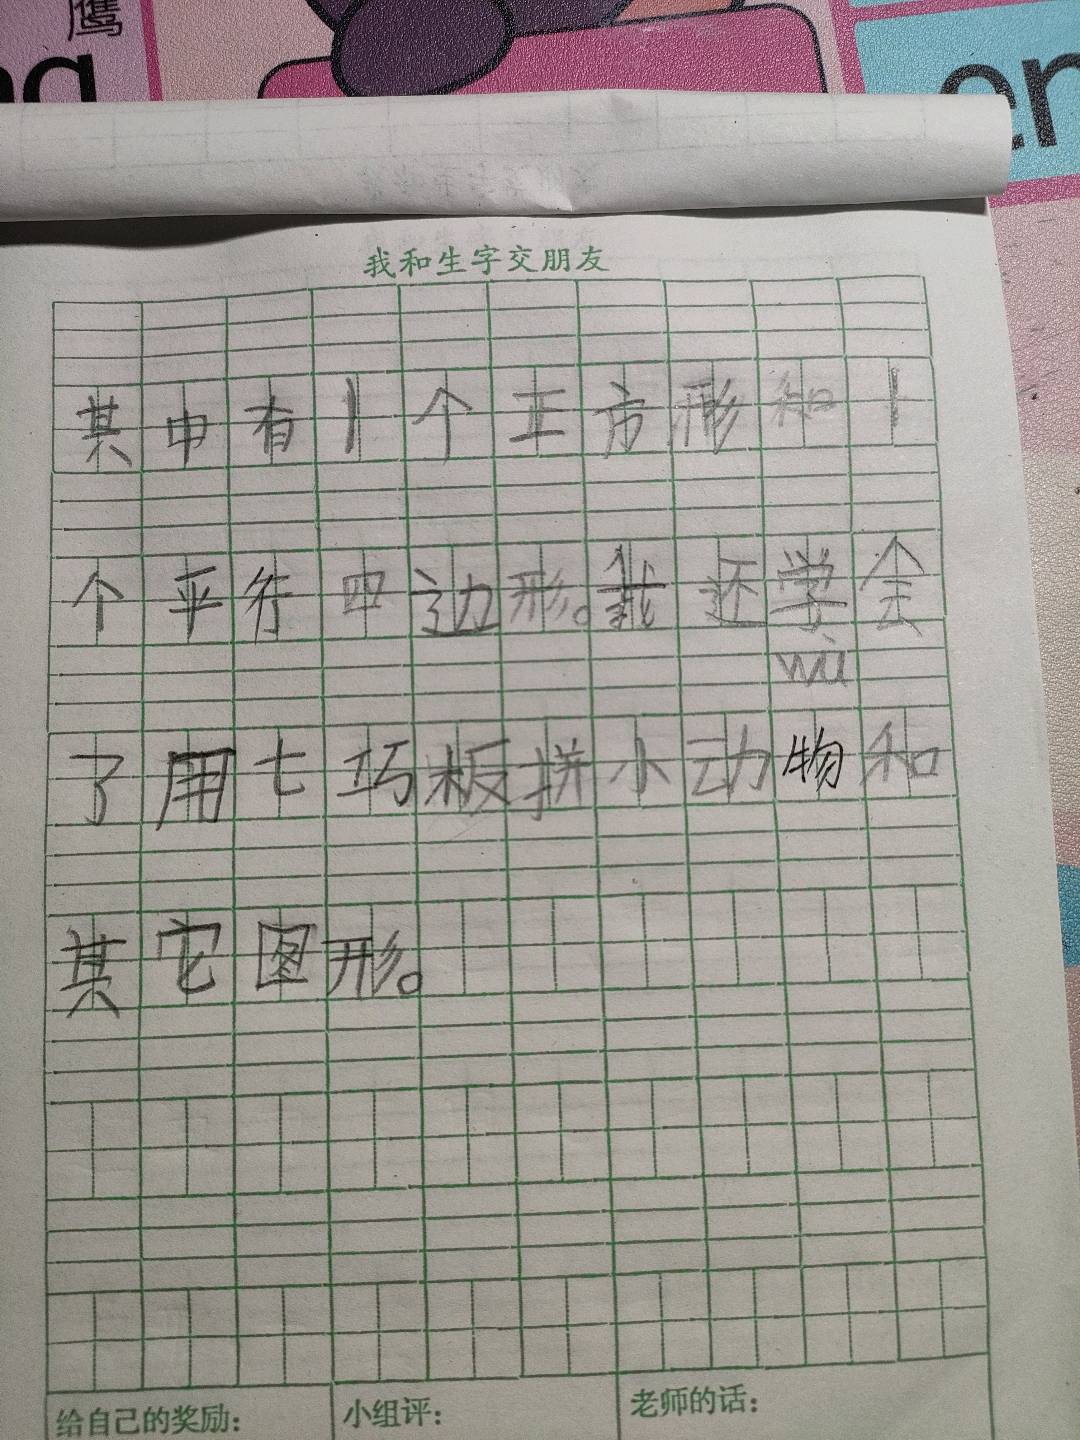 鹰
ng
en
我和生字交朋友
其中有1个正方形和1
个平行四边形。我还学会
wù
了用七巧板拼小动物和
其它图形。
给自己的奖励：
小组评：
老师的话：